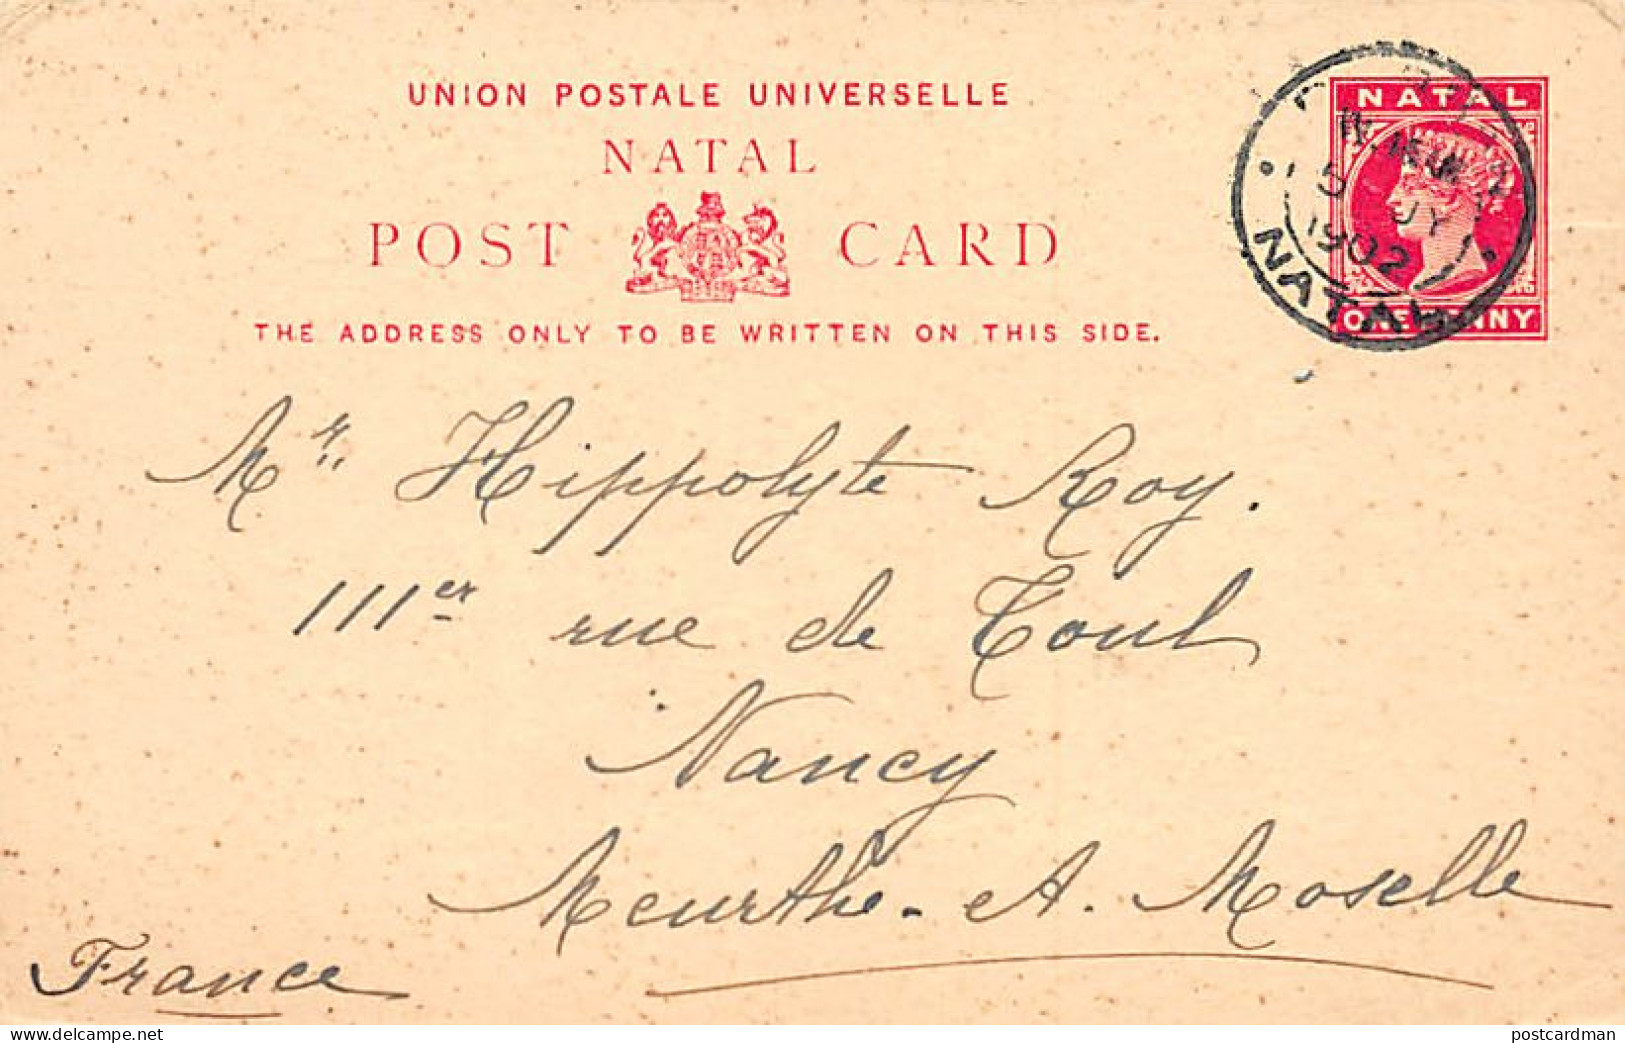 UNION POSTALE UNIVERSELLE
NATAL
POST CARD
THE ADDRESS ONLY TO BE WRITTEN ON THIS SIDE.
NATAL
ONE PENNY
5 JY
1902
NATAL
Mr. Hippolyte Roy.
111er rue de Toul
Nancy
Meurthe-et-Moselle
France
www.delcampe.net
postcardman